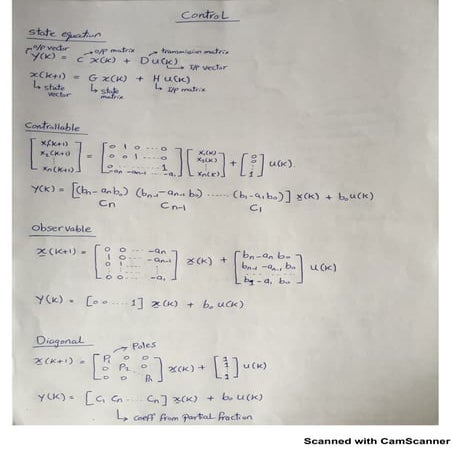 Control
state equation
o/p vector o/p matrix transmission matrix
Y(K) = C x(K) + D u(K) I/P vector
x(K+1) = G x(K) + H u(K)
state vector state matrix I/P matrix
Controllable
[x₁(K+1) x₂(K+1) ... xn(K+1)] = [0 1 0 ... 0 0 0 1 ... 0 ... 1 -an -an-1 ... -a₁] [x₁(K) x₂(K) ... xn(K)] + [0 0 ⋮ 1] u(K).
Y(K) = [(bn - an b₀) (bn-1 - an-1 b₀) ...... (b₁ - a₁ b₀)] x(K) + b₀ u(K)
Cn Cn-1 C₁
Observable
x(K+1) = [0 0 ... -an 1 0 ... -an-1 0 1 ... ... -a₁] x(K) + [bn - an b₀ bn-1 - an-1 b₀ ... - a₁ b₀] u(K)
Y(K) = [0 0 .... 1] x(K) + b₀ u(K)
Diagonal
Poles
x(K+1) = [P₁ 0 0 0 P₂ 0 0 0 Pn] x(K) + [1 1 1] u(K)
Y(K) = [C₁ Cn ... Cn] x(K) + b₀ u(K)
coeff from partial fraction
Scanned with CamScanner